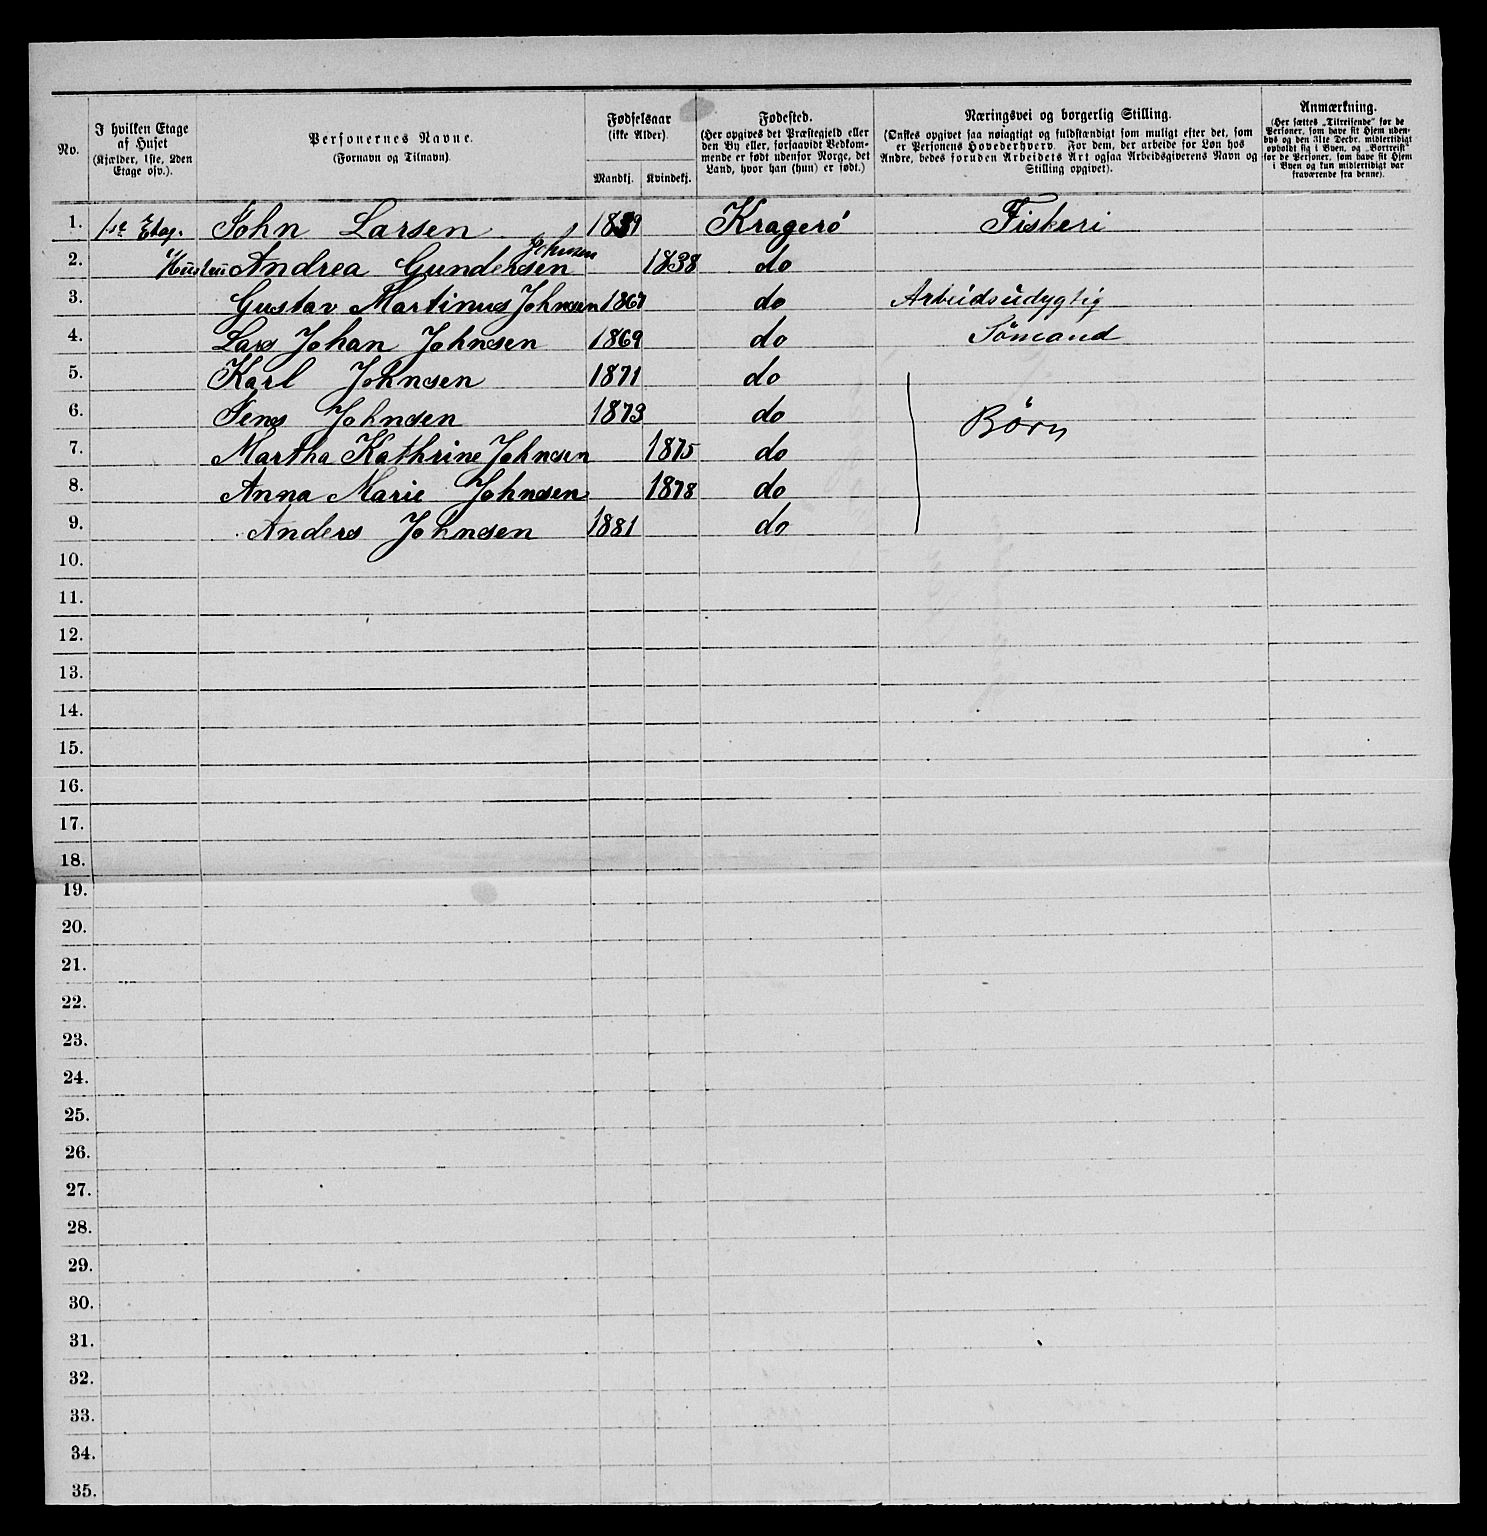 No.
I hvilken Etage af Huset (Kjælder, 1ste, 2den Etage osv.).
Personernes Navne. (Fornavn og Tilnavn)
Fødselsaar (ikke Alder).
Mandkj. Kvindekj.
Fødested. (Her opgives det Præstegjeld eller den By eller, forsaavidt Vedkommende er født udenfor Norge, det Land, hvor han (hun) er født.)
Næringsvei og borgerlig Stilling. (Ønskes opgivet saa nøiagtigt og fuldstændigt som muligt efter det, som er Personens Hovederhverv. For dem, der arbeide for Løn hos Andre, bedes foruden Arbeidets Art ogsaa Arbeidsgiverens Navn og Stilling opgivet).
Anmærkning. (Her sættes „Tilreisende" for de Personer, som have sit Hjem udenbys og den 31te Decbr. midlertidigt opholdt sig i Byen, og „Bortreist" for de Personer, som have sit Hjem i Byen og kun midlertidigt var fraværende fra denne).
1. 1se Etag. John Larsen Kragerö Fiskeri
Johnsen
2. Hustru Andrea Gundersen 1838 do
3. Gustav Martinus Johnsen 1867 do Arbeidsudygtig
4. Lars Johan Johnsen 1869 do Sömand
5. Karl Johnsen 1871 do
6. Jens Johnsen 1873 do Börn
7. Martha Kathrine Johnsen 1875 do
8. Anna Marie Johnsen 1878 do
9. Anders Johnsen 1881 do
10.
11.
12.
13.
14.
15.
16.
17.
18.
19.
20.
21.
22.
23.
24.
25.
26.
27.
28.
29.
30.
31.
32.
33.
34.
35.